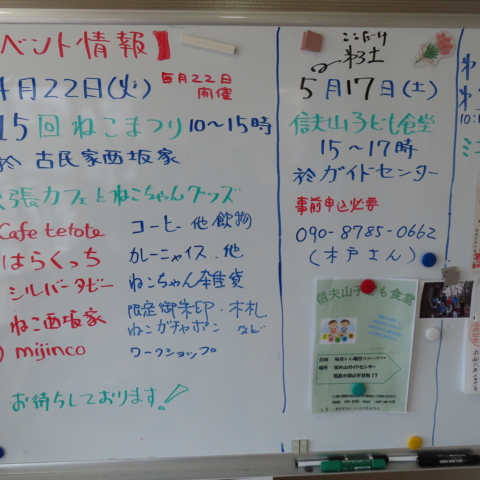 ベント情報
4月22日(火)
毎月22日
開催
15回 ねこまつり 10〜15時
於 古民家西坂家
張カフェとねこちゃんグッズ
Cafe tetote コーヒー 他 飲物
はらくっち カレーライス 他
シルバータビー ねこちゃん雑貨
ねこ西坂家 限定御朱印・木札
ねこガチャポン など
mijinco ワークショップ
お待ちしております!
ここだけ
5月17日(土)
信夫山子ども食堂
15〜17時
於ガイドセンター
事前申込必要
090-8785-0662
(木戸さん)
信夫山子ども食堂